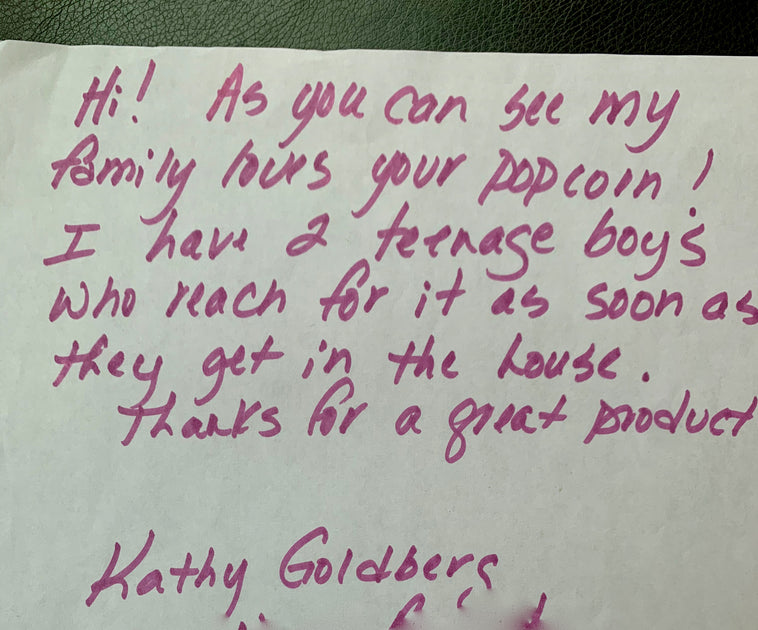 Hi! As you can see my
family loves your popcorn!
I have 2 teenage boy's
who reach for it as soon as
they get in the house.
Thanks for a great product
Kathy Goldberg